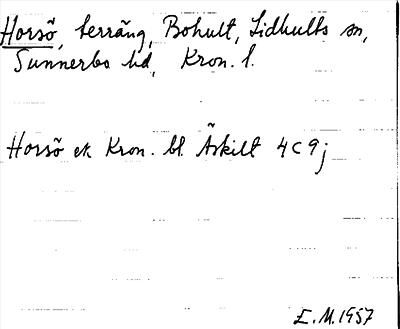 Horsö, terräng, Bohult, Lidhults sn,
Sunnerbo hd, Kron. l.
Horsö ek Kron. bl. Äskilt 4C9j
E.M.1957